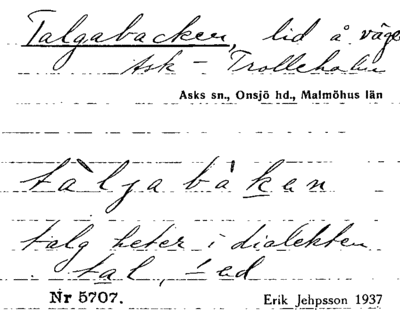 Talgabacken, lid å väge
Ask - Trolleholm
Asks sn., Onsjö hd., Malmöhus län
tàljabàken
talg heter i dialekten
tal, -ed
Nr 5707. Erik Jehpsson 1937